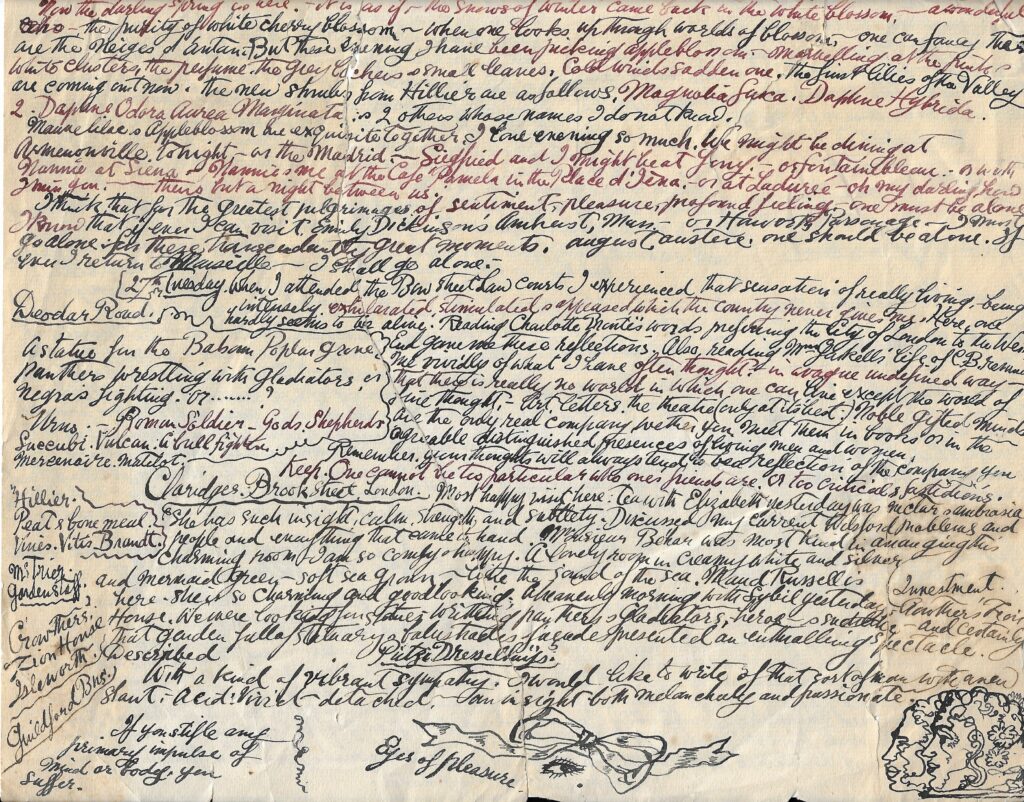 Now the darling Spring is here. It is as if the snows of winter came back in the white blossom, a wonderful
echo - the purity of white cherry blossom - when one looks up through worlds of blossom, one can fancy these
are the Neiges d'antan. But these evening I have been picking appleblossom - marvelling at the pink &
white clusters, the perfume, the grey lichens & small leaves. Cold winds sadden one. The first lilies of the Valley
are coming out now. The new shrubs from Hillier are as follows, Magnolia Fusca. Daphne Hybrida.
2. Daphne Odora Aurea Marginata. & 2 others whose names I do not read.
Mauve lilac & Appleblossom are exquisite together. I love evening so much. We might be dining at
Armenonville tonight - or the Madrid - Siegfried and I might be at or Fontainebleau - or with
Nannie at Siena - Nannie & me at the Café Pamela in the Place d'Iena - or at Laduree - oh my darling how
I miss you. - theres but a night between us.
I think that for the greatest pilgrimages of sentiment, pleasure, profound feeling - one must be alone
I know that if ever I can visit Emily Dickinson's Amherst, Mass - or Haworth Parsonage - I must
go alone - for these transcendently great moments, august, austere, one should be alone. If
ever I return to Marseille - I shall go alone.
27th Tuesday. When I attended the Bow Street Law Courts I experienced that sensation of really living - being
intensely exhilarated, stimulated & appeased which the country never gives me. Here, one
hardly seems to be alive. Reading Charlotte Brontë's words preferring the City of London to the West
End gave me these reflections. Also, reading Mrs Gaskell's life of C.B. reasured
me vividly of what I have often thought - in a vague undefined way -
that there is really no world in which one can live except the world of
thought. Art, letters, the theatre (only at its best.) Noble Gifted Minds
are the only real company wether you meet them in books or in the
agreable distinguished presences of living men and women.
Remember, your thoughts will always tend to be a reflection of the company you
Keep. One cannot be too particular who ones friends are. Or too critical & fastidious.
Deodar Road.
A statue for the Balsam Poplar grove
Panther wrestling with gladiators, or
negros fighting. or ........?
Urns. - Roman Soldier - Gods, Shepherds
Succubi. Vulcan. A bull fighter.
Mercenaire. Matelot.
Claridges. Brook Street, London. Most happy visit here: tea with Elizabeth yesterday was nectar & ambrosia
She has such insight, calm, strength, and subtlety. Discussed my current Wilsford problems and
people and everything that came to hand. Monsieur Behar was most kind in arranging this
charming room, I am so comfy & happy. A lovely room in creamy white and silver
and mermaid green - soft sea green - like the sound of the sea. Maud Russell is
here - she is so charming and goodlooking. A heavenly morning with Sybil yesterday,
House. We were looking for statues. Writhing panthers & gladiators, heros, & suddenly
that garden full of statuary & balustrades & façade presented an enthralling spectacle.
Described Putzi Dresselhuys.
With a kind of vibrant sympathy. I would like to write of that sort of man with a new
slant - Acid. Violet - detached. An insight both melancholy and passionate
Hillier.
Peat & bone meal.
Vines. Vitis Brandt.
Mr Trier.
Garden Staff.
Crowther.
Zion House
Isleworth.
Guildford Bns.
Investment
and certainly
If you stifle any
primary impulse of
mind or body, you
suffer.
Eyes of pleasure.